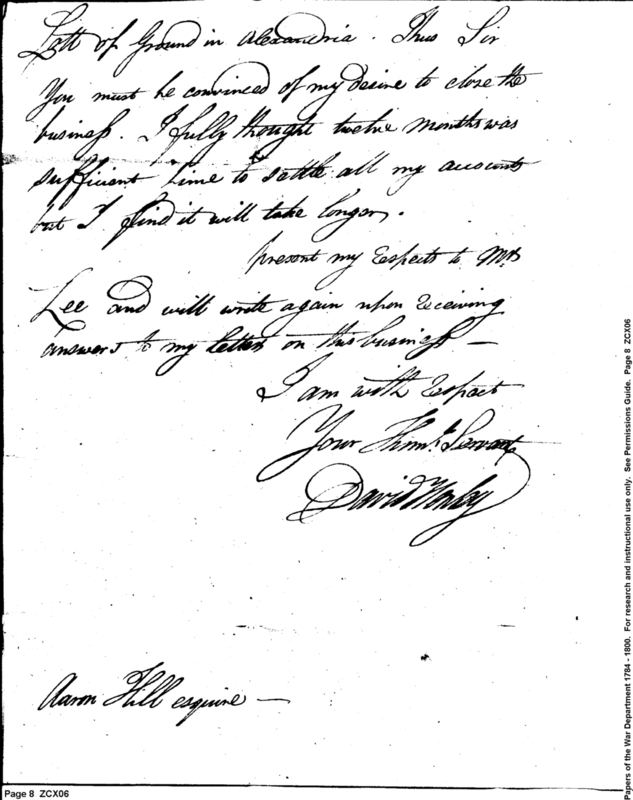 Lott of Ground in Alexandria. Thus Sir
You must be convinced of my desire to close the
business. I fully thought twelve months was
sufficient time to sattle all my accounts
but I find it will take longer.
present my respects to Mrs
Lee and will write again upon receiving
answers to my letters on this business —
I am with respect
Your Hbmle Servant
David Henley
Aaron Hill esquire —
Page 8 ZCX06
Papers of the War Department 1784 - 1800. For research and instructional use only. See Permissions Guide. Page 8 ZCX06